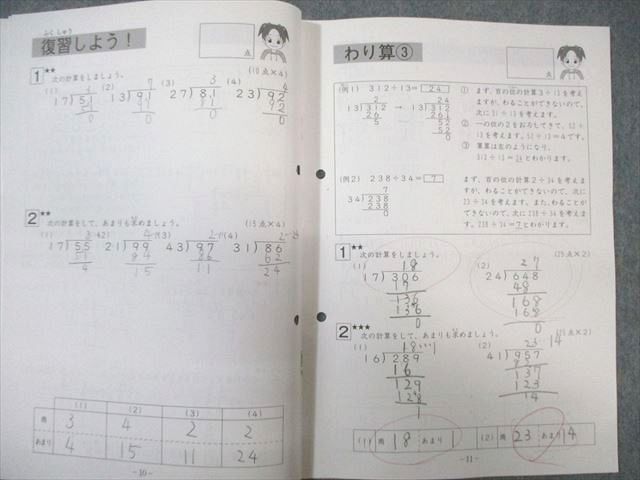 ふくしゅう
復習しよう！
点
1 ★★ 次の計算をしましょう。 (10点×4)
(1) (2) (3) (4)
7 3 4
17)51 13)91 27)81 23)92
51 91 81 92
0 0 0 0
2 ★★ 次の計算をして、あまりも求めましょう。 (15点×4)
(1) (2) (3) (4)
17)55 21)99 43)97 31)86
51 84 86 62
4 15 11 24
(1) (2) (3) (4)
商 3 4 2 2
あまり 4 15 11 24
-10-
わり算③
点
(例1) 312÷13=24
2 24
13)312 → 13)312
26 26
5 52
52
0
① まず、百の位の計算3÷13を考え
ますが、わることができないので、
次に31÷13を考えます。
② 一の位の2をおろしてきて、52÷
13を考えます。52÷13=4です。
③ 筆算は左のようになり、
312÷13=24とわかります。
(例2) 238÷34=7
7
34)238
238
0
まず、百の位の計算2÷34を考えま
すが、わることができないので、次に
23÷34を考えます。また、わることが
できないので、次に238÷34を考えま
す。238÷34=7とわかります。
1 ★★ 次の計算をしましょう。 (25点×2)
(1) 18 (2) 27
17)306 24)648
17 48
136 168
136 168
0 0
2 ★★★ 次の計算をして、あまりも求めましょう。 (25点×2)
(1) 18…1 (2) 23 14
16)289 41)957
16 82
129 137
128 123
1 14
(1) 商 18 あまり 1 (2) 商 23 あまり 14
-11-